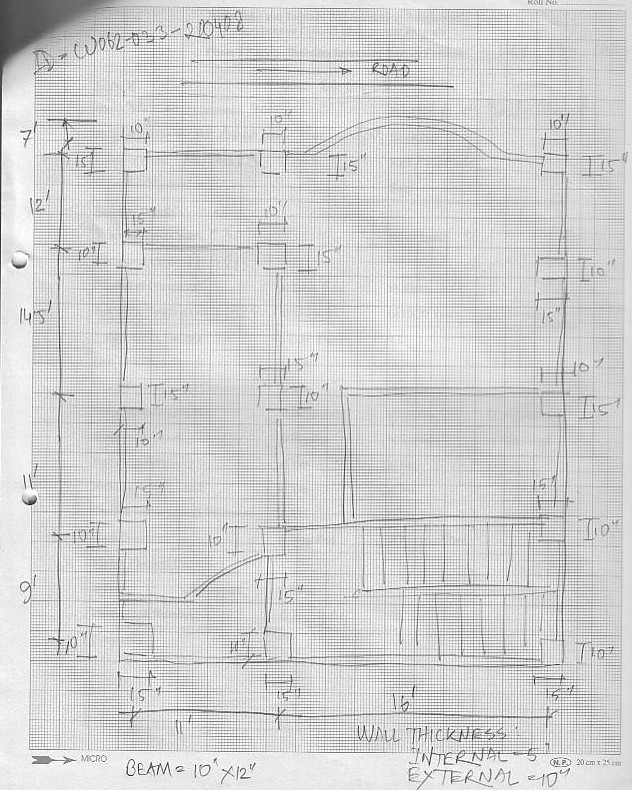 Roll No.
ID = CU062-033-210408
ROAD
7'
10"
10"
10"
15"
15"
15"
12'
15"
10"
10"
15"
10"
14.5'
15"
15"
10"
15"
10"
10"
15"
10"
11'
15"
15"
10"
10"
10"
9'
15"
10"
10"
15"
15"
15"
11'
16'
WALL THICKNESS:
INTERNAL = 5"
EXTERNAL = 10"
BEAM = 10" X 12"
MICRO
N.P.
20 cm x 25 cm